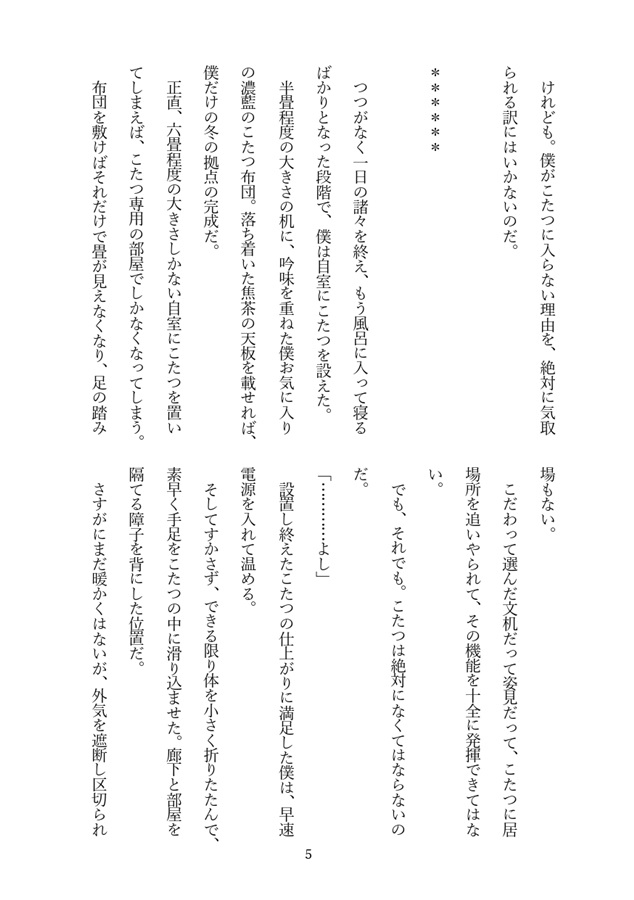 けれども。僕がこたつに入らない理由を、絶対に気取
られる訳にはいかないのだ。
＊＊＊＊＊＊
つつがなく一日の諸々を終え、もう風呂に入って寝る
ばかりとなった段階で、僕は自室にこたつを設えた。
半畳程度の大きさの机に、吟味を重ねた僕お気に入り
の濃藍のこたつ布団。落ち着いた焦茶の天板を載せれば、
僕だけの冬の拠点の完成だ。
正直、六畳程度の大きさしかない自室にこたつを置い
てしまえば、こたつ専用の部屋でしかなくなってしまう。
布団を敷けばそれだけで畳が見えなくなり、足の踏み
場もない。
こだわって選んだ文机だって姿見だって、こたつに居
場所を追いやられて、その機能を十全に発揮できてはな
い。
でも、それでも。こたつは絶対になくてはならないの
だ。
「…………よし」
設置し終えたこたつの仕上がりに満足した僕は、早速
電源を入れて温める。
そしてすかさず、できる限り体を小さく折りたたんで、
素早く手足をこたつの中に滑り込ませた。廊下と部屋を
隔てる障子を背にした位置だ。
さすがにまだ暖かくはないが、外気を遮断し区切られ
5